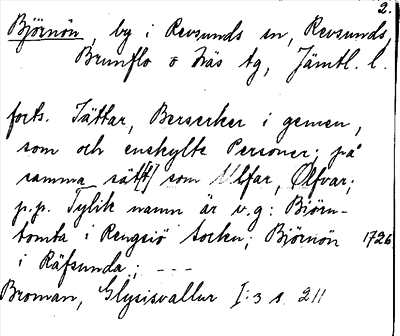 2.
Björnön, by i Revsunds sn, Revsunds,
Brunflo o Näs tg, Jämtl. l.
forts. Jättar, Berserker i gemen,
som och enskylte Personer; på
samma sät[t] som Ulfar, Ølfvar;
p.p. Tylik namn är v.g: Biörn-
tomta i Rengsiö socken; Biörnön 1726
i Räfsunda; - - -
Broman, Glysisvallur I:3 s. 211